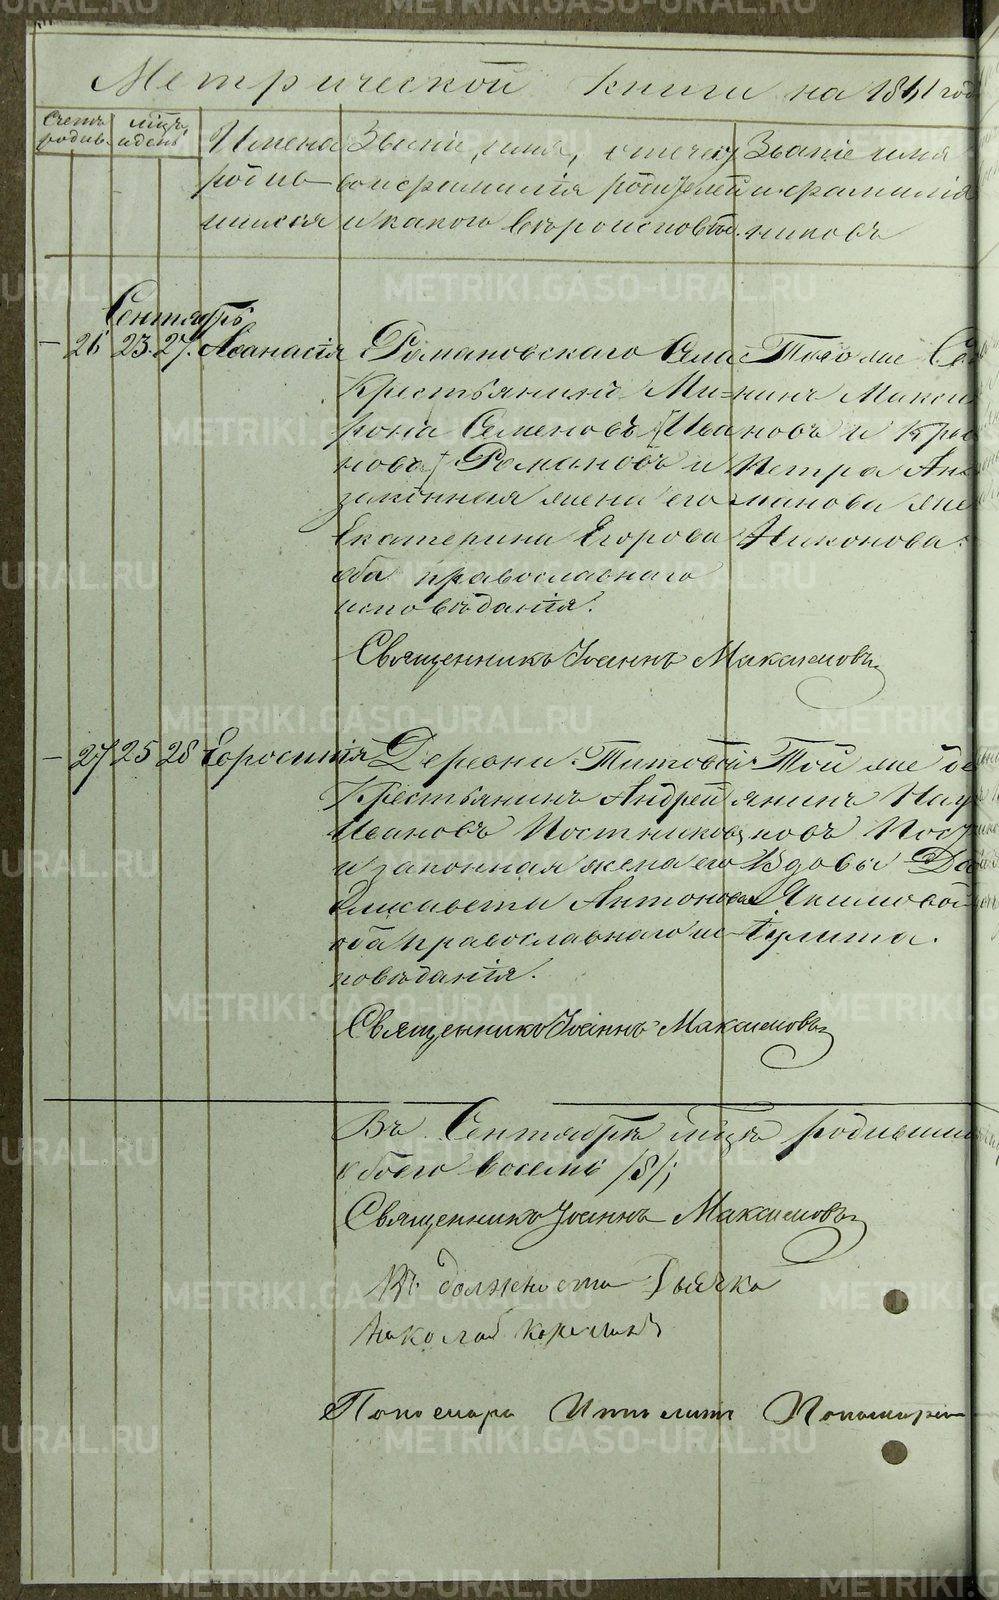 Метрической книги на 1861 год
Счетъ родив. мѣца, и день Имена родив шихся Званіе, имя, отечество и фамилія родителей и какого вѣроисповѣд. Званіе имя и фамилія никовъ
Сентябрь
26 23. 27. Аѳанасія Романовскаго Села Того же Се
Крестьянинъ Ми= нинъ Макси
рона Семеновъ Ивановъ и Кре
новъ Романовъ и Петра Ан
законная жена его манова же
Екатерина Егорова Никонова.
оба православнаго
исповѣданія.
Священникъ Іоаннъ Максимовъ
27 25 28 Евросинія Деревни Титовой Той же де
Крестьянинъ Андрей янинъ Нау
Ивановъ Постниковъ новъ Пост
и законная жена его Вдовы
Елисавета Антонова Якимовой
оба православнаго ис=
повѣданія.
Священникъ Іоаннъ Максимовъ
Въ Сентябрѣ мѣцѣ родивши
обоего восемь /8/;
Священникъ Іоаннъ Максимовъ
въ должности Дьячка
Николай
Пономарь Ипполитъ
METRIKI.GASO-URAL.RU